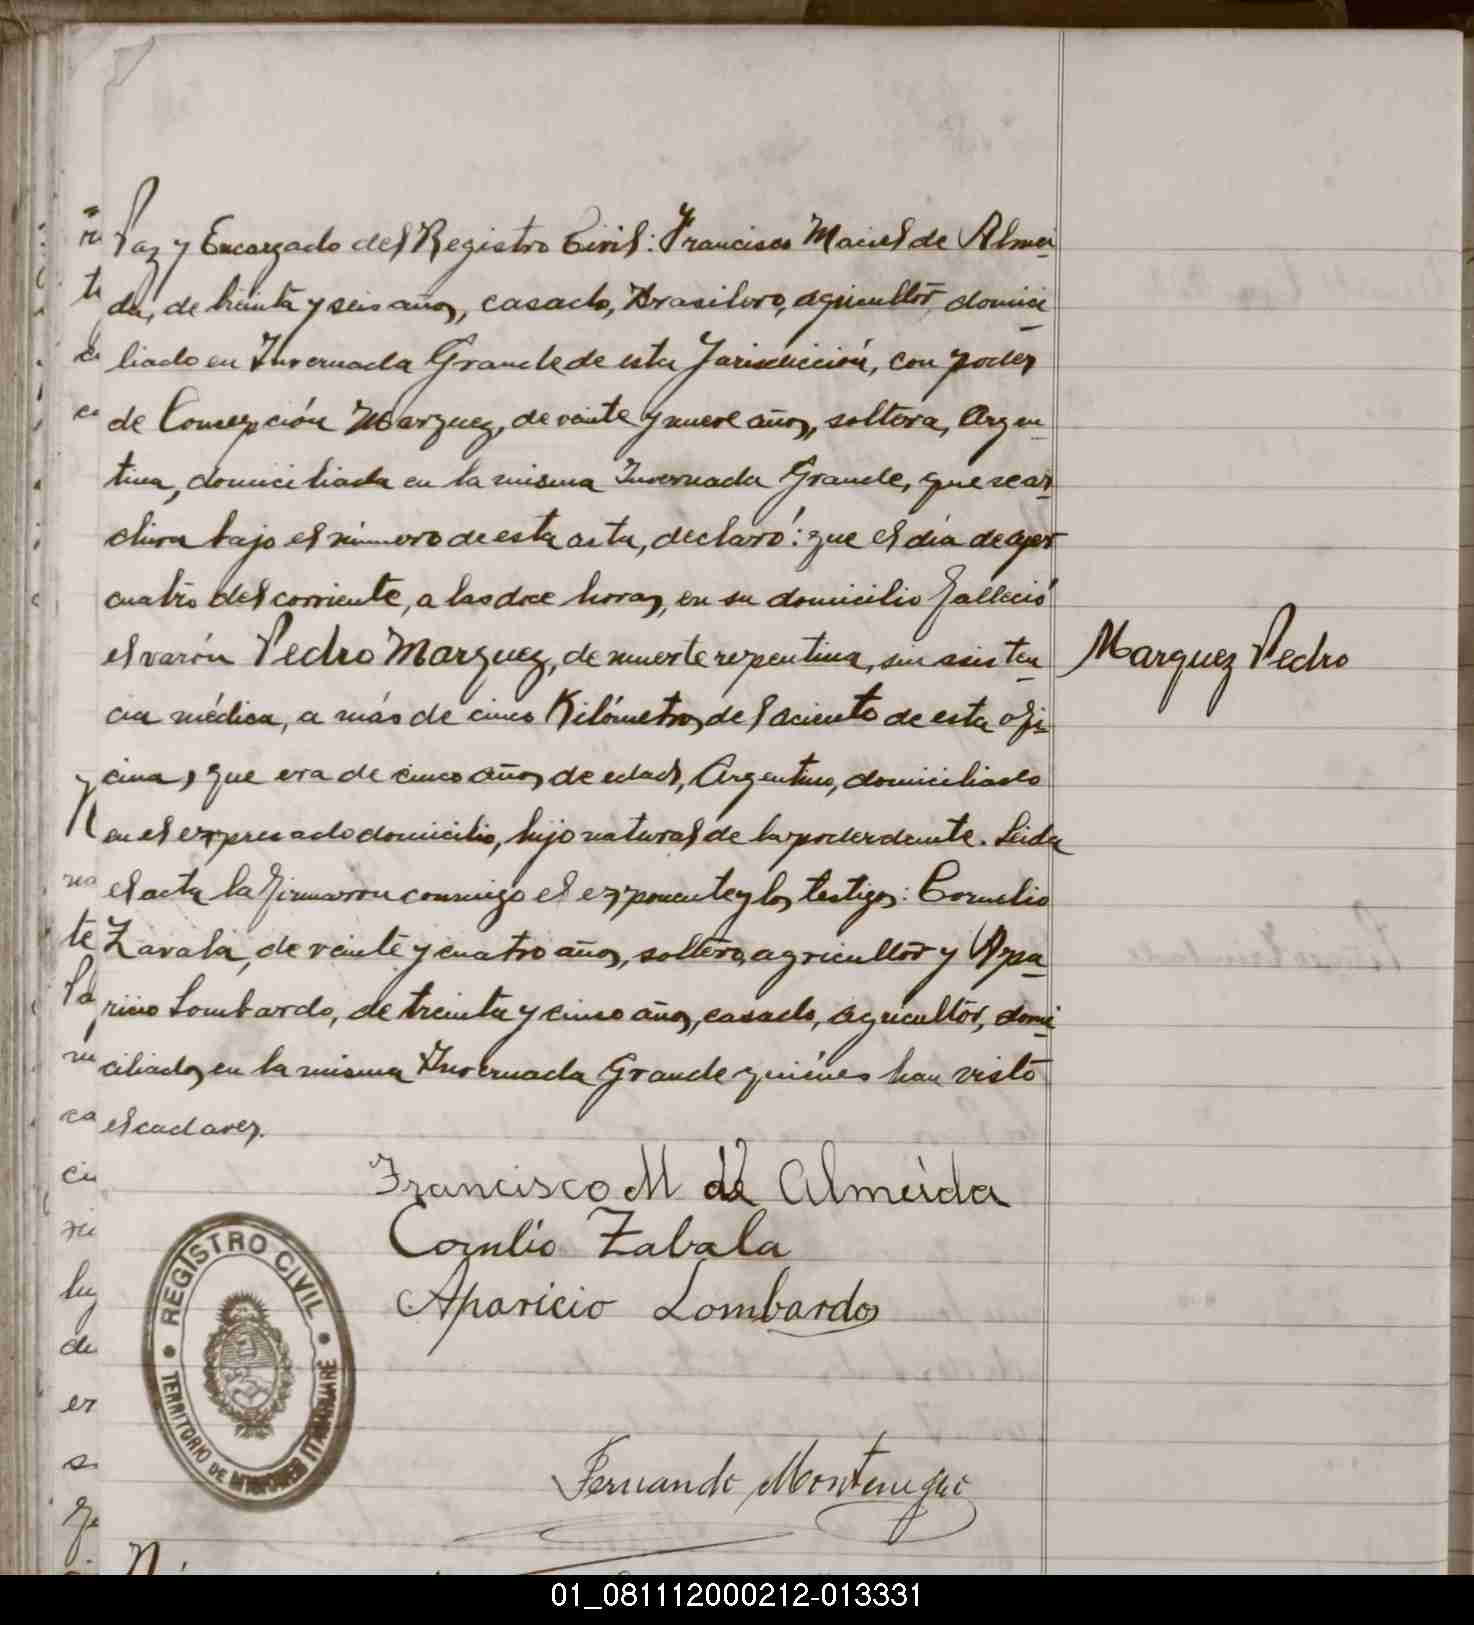 Paz y Encargado del Registro Civil: Francisco Maciel de Almei
da, de treinta y seis años, casado, Brasilero, agricultor, domici
liado en Invernada Grande de esta Jurisdicción, con poder
de Concepción Marquez, de veinte y nueve años, soltera, Argen
tina, domiciliada en la misma Invernada Grande, que se ar
chiva bajo el número de esta acta, declaró: que el día de ayer
cuatro del corriente, a las doce horas, en su domicilio falleció
el varón Pedro Marquez, de muerte repentina, sin asisten
Marquez Pedro
cia médica, a más de cinco Kilómetros del aciento de esta ofi
cina, que era de cinco años de edad, Argentino, domiciliado
en el expresado domicilio, hijo natural de la poderdante. Leida
el acta la firmaron conmigo el exponente y los testigos: Cornelio
Zavala, de veinte y cuatro años, soltero, agricultor y Apa
ricio Lombardo, de treinta y cinco años, casado, agricultor, domi
ciliados en la misma Invernada Grande quiénes han visto
el cadaver.
Francisco M de Almeida
Cornelio Zabala
Aparicio Lombardo
REGISTRO CIVIL
TERRITORIO DE MISIONES ITACARUARE
Fernando Montenegro
01_081112000212-013331